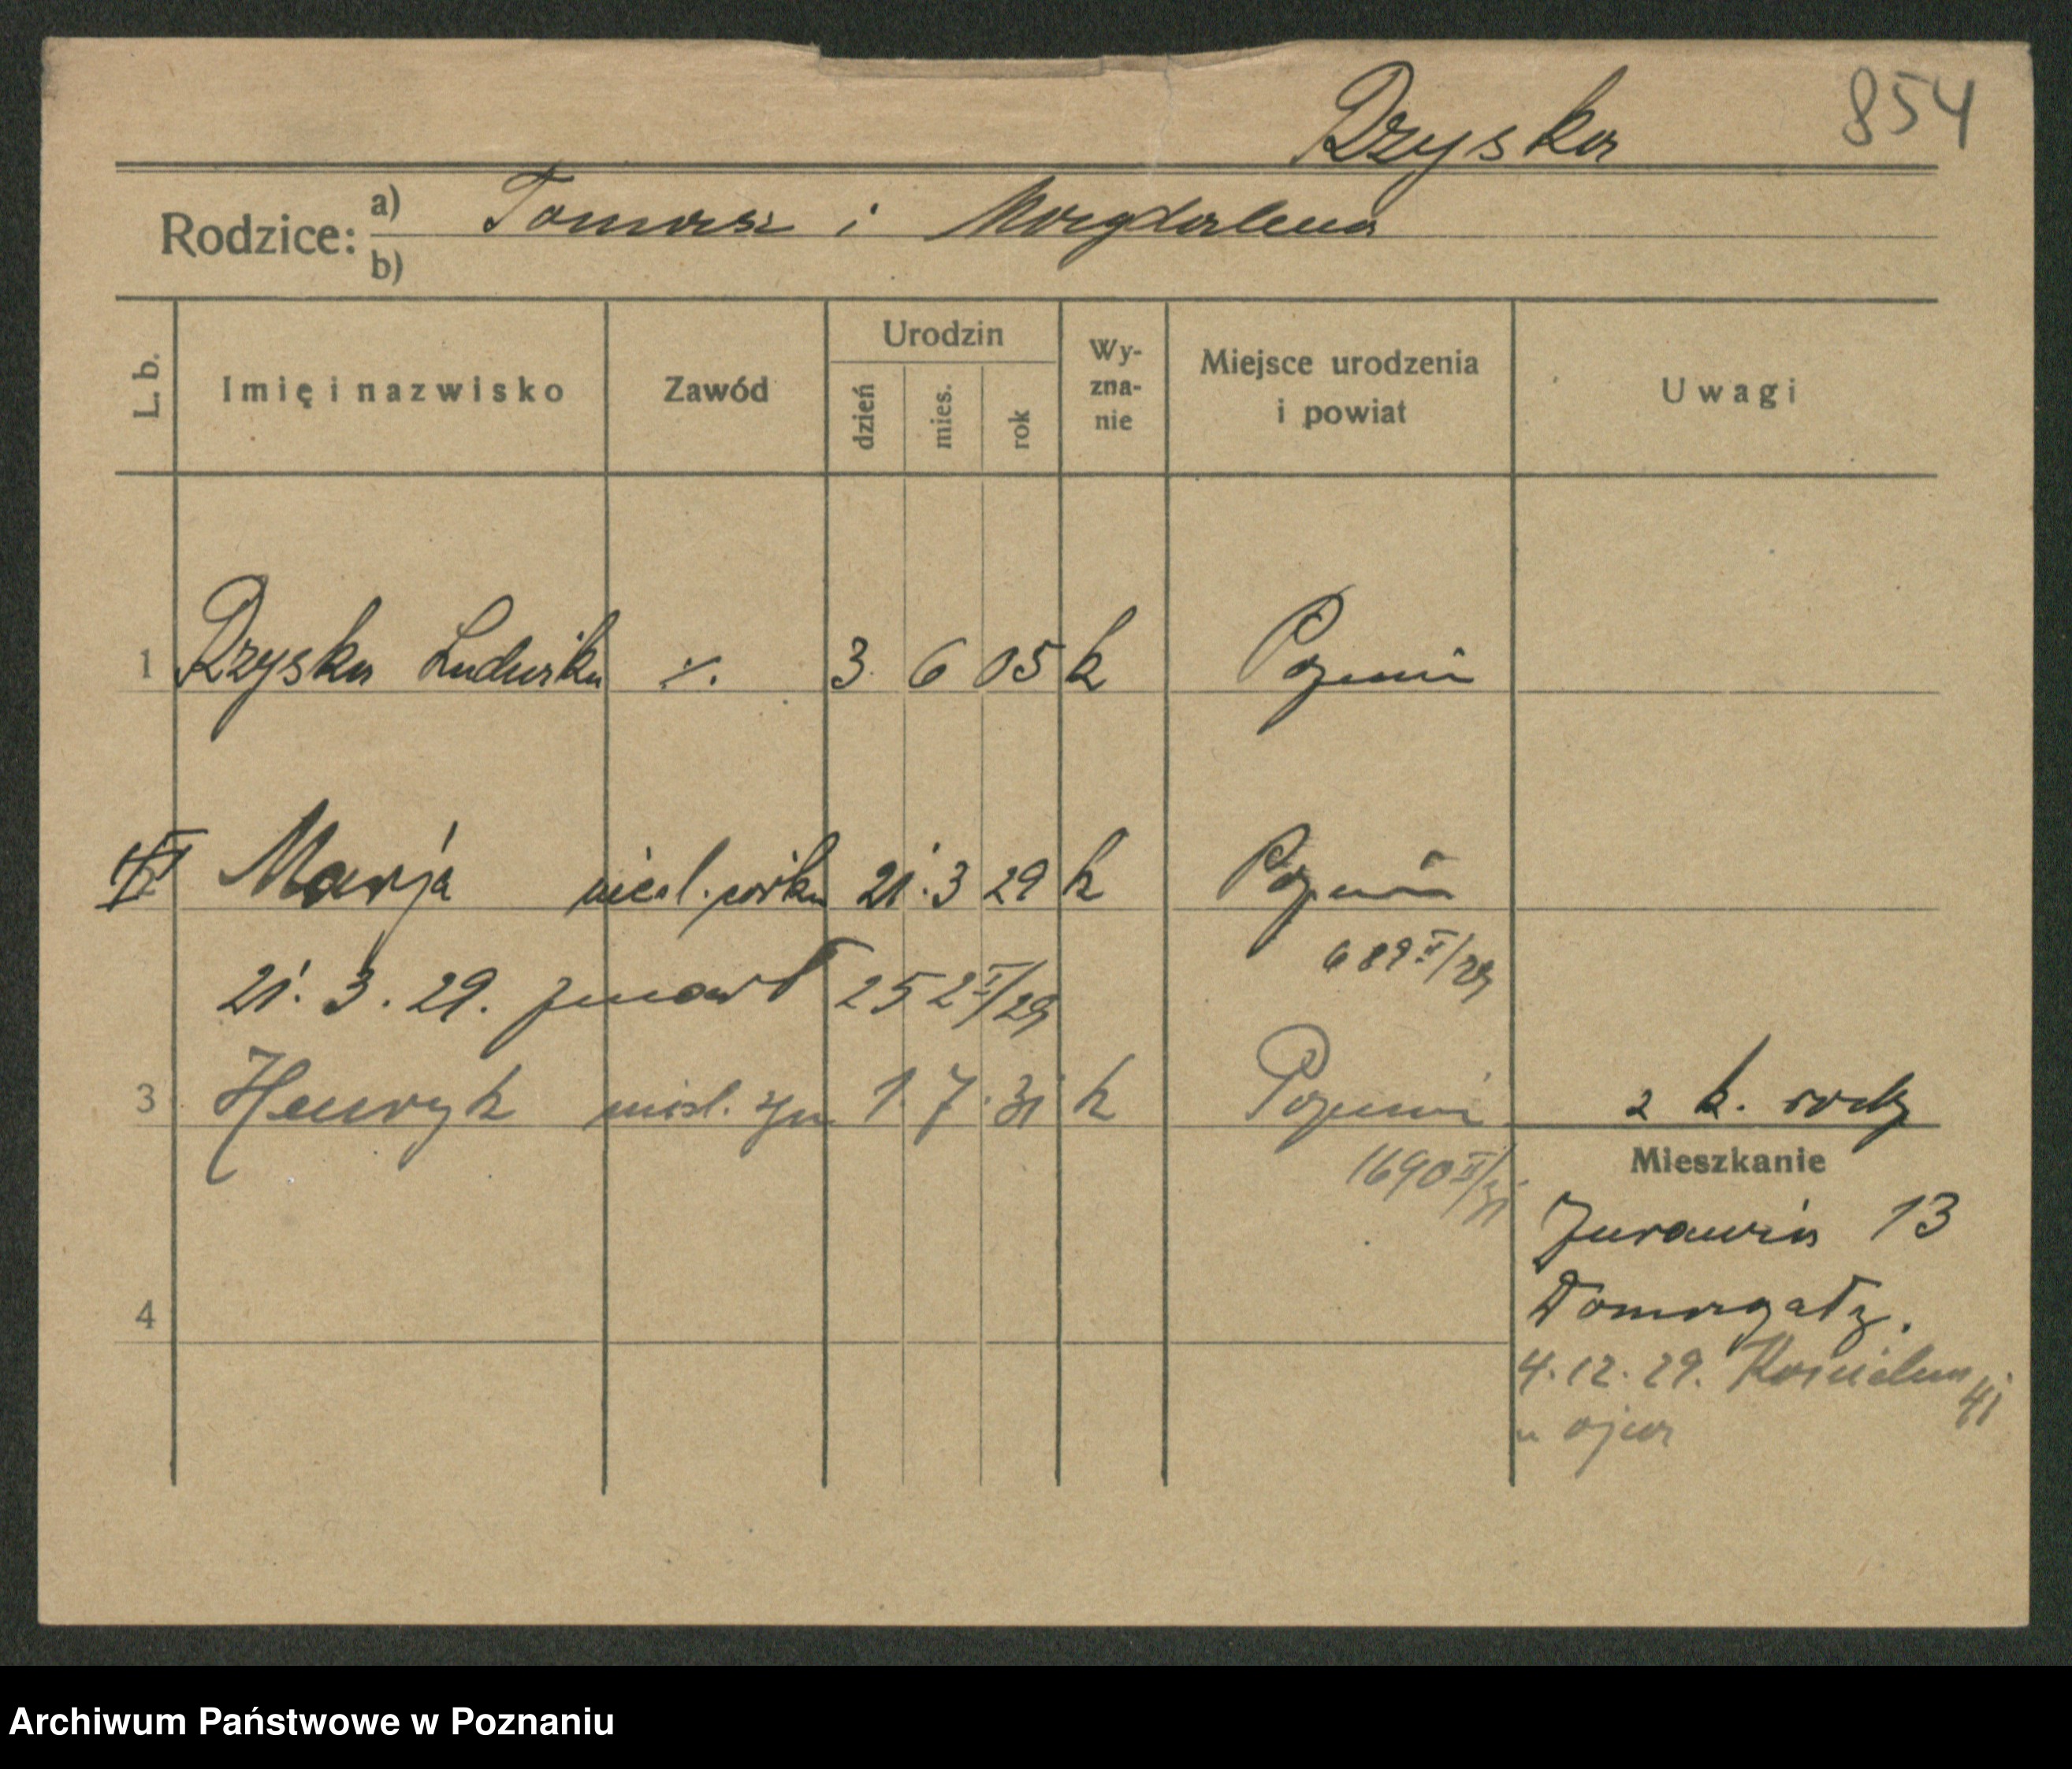 Rzyska 854
Rodzice: a) Tomasz i Magdalena
b)
L. b. Imię i nazwisko Zawód Urodzin dzień mies. rok Wy-zna-nie Miejsce urodzenia i powiat Uwagi
1 Rzyska Ludwika ·/. 3. 6 05 k Poznań
Marja nieśl. córka 21. 3 29 k Poznań
689 II/29
21. 3. 29. zmarł 252 I/29
3 Henryk nieśl. syn 1. 7. 31 k Poznań 2 k.
1690 II/31
Mieszkanie
Żurawia 13
4
4. 12. 29. Kościelna 41
u ojca
Archiwum Państwowe w Poznaniu